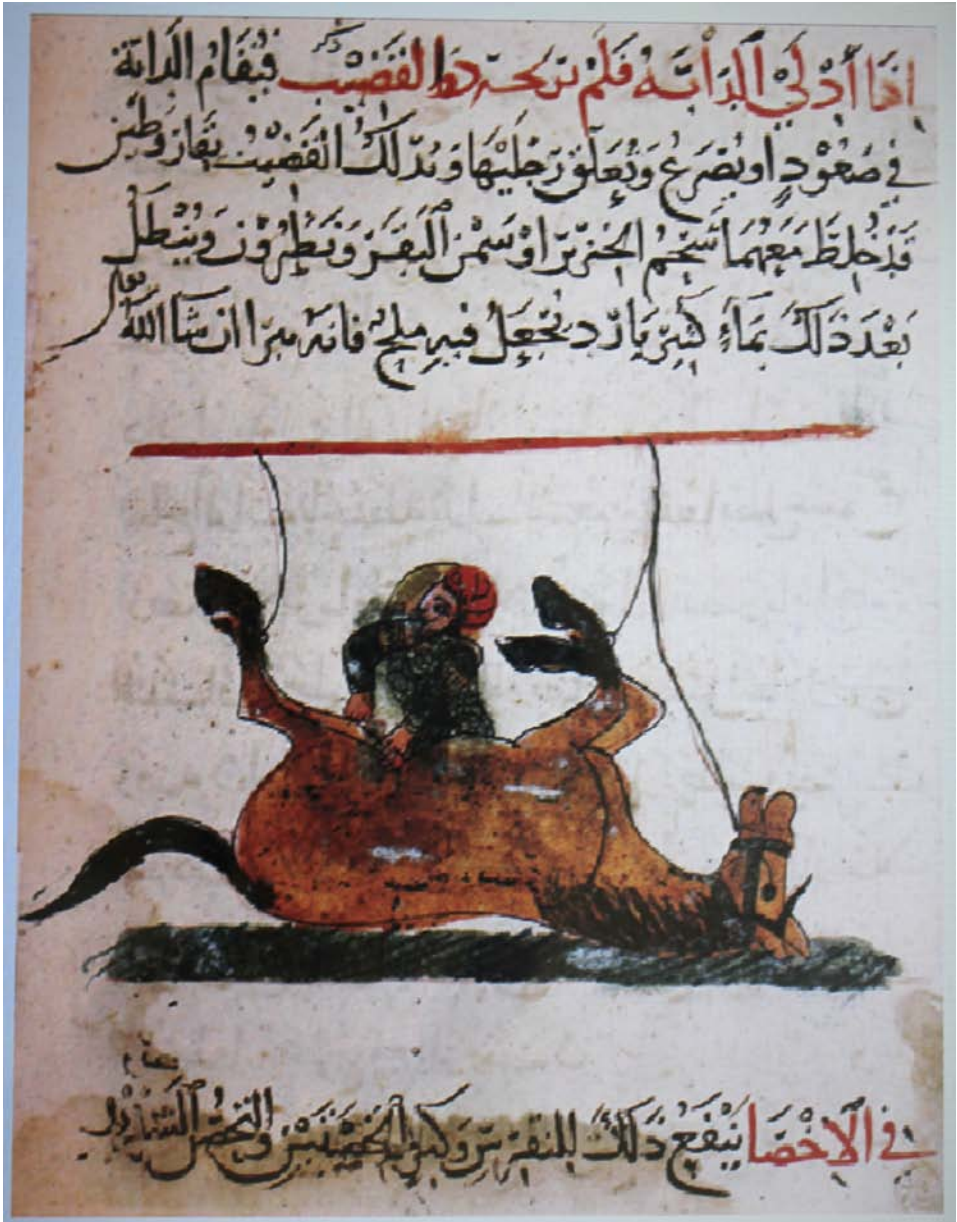 اذا أدلي الدابة فلم ترجع رد القضيب فيقام الدابة
في صعود او يصرع ويعلق رجليها ويدلك القضيب بقار وطين
قد خلط معهما شحم الخنزير او سمن البقر ونطرون وينطل
بعد ذلك بماء كثير بارد تجعل فيه ملح فانه يبرا ان شا الله تعالى
في الاخصا ينفع ذلك للنقرس وكبر الخصيتين